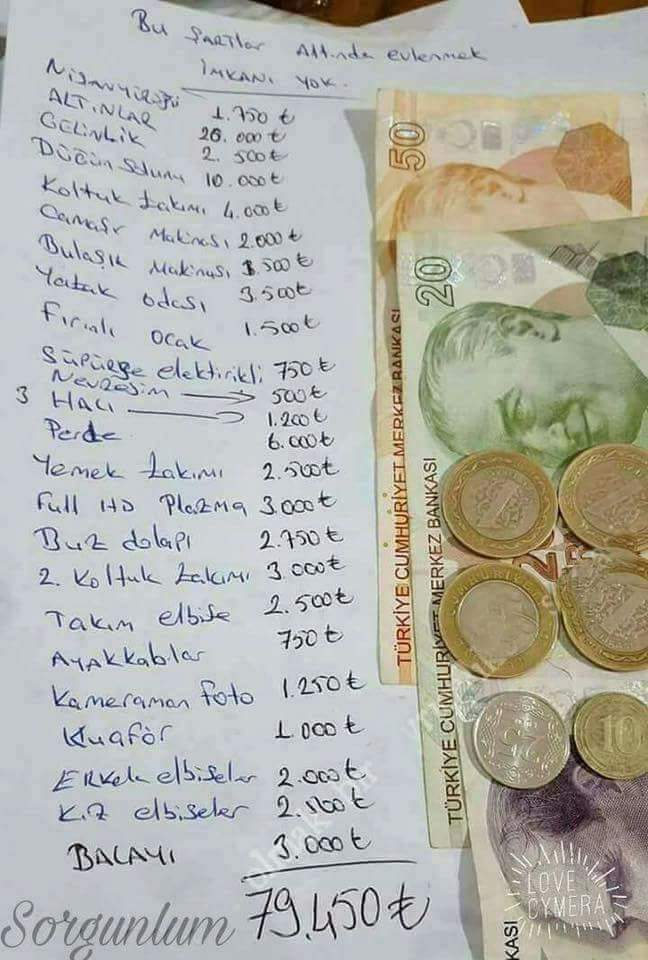 Bu Şartlar Altında evlenmek
İMKANI YOK.
Nişan yüzüğü 1.750 ₺
ALTINLAR 26.000 ₺
GELİNLİK 2.500 ₺
Düğün Salonu 10.000 ₺
Koltuk takımı 4.000 ₺
Camaşır Makinası 2.000 ₺
Bulaşık Makinası 1.500 ₺
Yatak odası 3.500 ₺
Fırınlı ocak 1.500 ₺
Süpürge elektirikli 750 ₺
Nevresim → 500 ₺
3 HALI → 1.200 ₺
Perde 6.000 ₺
Yemek takımı 2.500 ₺
Full HD Plazma 3.000 ₺
Buz dolapı 2.750 ₺
2. Koltuk takımı 3.000 ₺
Takım elbise 2.500 ₺
Ayakkabılar 750 ₺
Kameraman foto 1.250 ₺
Kuaför 1.000 ₺
Erkek elbiseler 2.000 ₺
Kız elbiseler
BALAYI 3.000 ₺
79.450 ₺
50
TÜRKİYE CUMHURİYET MERKEZ BANKASI
20
TÜRKİYE CUMHURİYET MERKEZ BANKASI
10
KASI
Sorgunlum
LOVE
CYMERA